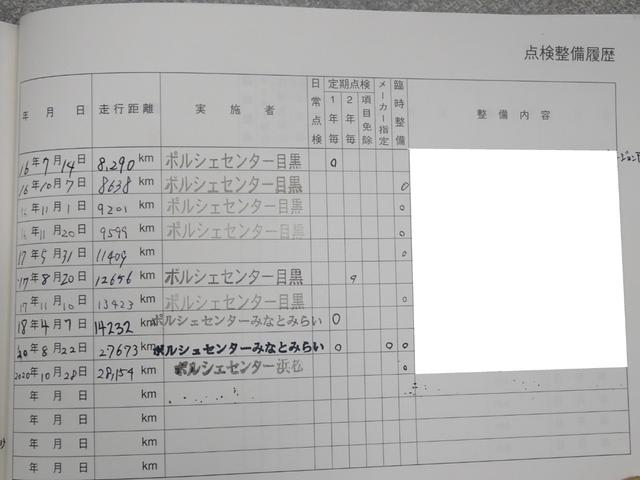 点検整備履歴
年 月 日 走行距離 実施者 日常点検 定期点検 1年毎 2年毎 項目免除 メーカー指定 臨時整備 整備内容
16年7月14日 8,290 km ポルシェセンター目黒 ○
16年10月7日 8638 km ポルシェセンター目黒 ○
16年11月1日 9201 km ポルシェセンター目黒 ○
16年11月20日 9599 km ポルシェセンター目黒 ○
17年5月31日 11409 km ○
17年8月20日 12656 km ポルシェセンター目黒
17年11月10日 13423 km ポルシェセンター目黒 ○
18年4月7日 14232 km ポルシェセンターみなとみらい ○
20年8月22日 27673 km ポルシェセンターみなとみらい ○ ○ ○
2020年10月28日 28,154 km ポルシェセンター浜松 ○
年 月 日 km
年 月 日 km
年 月 日 km
年 月 日 km